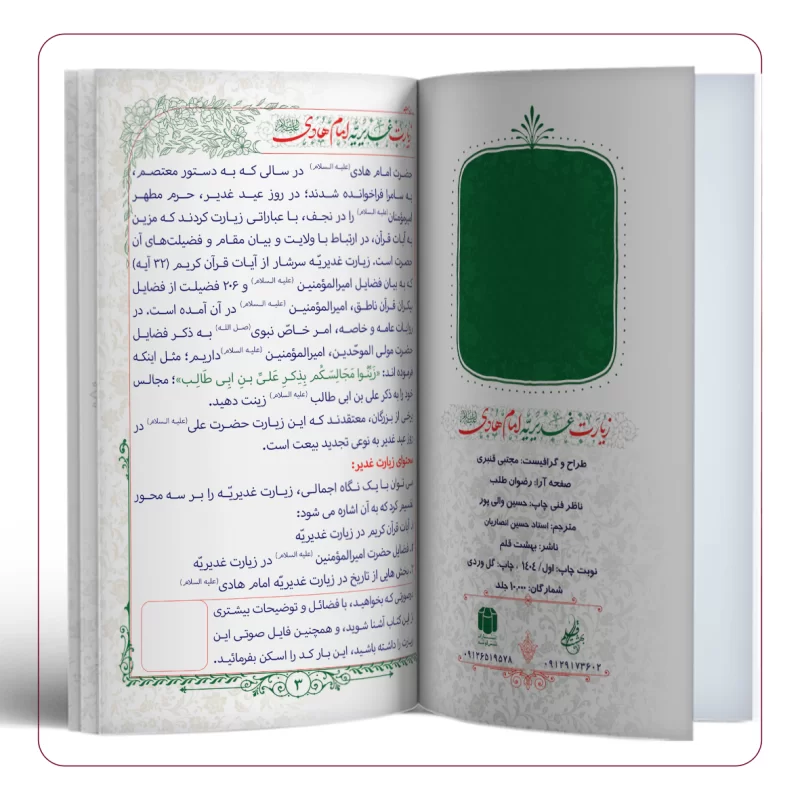 زیارت غدیریّه امام هادی
طراح و گرافیست: مجتبی قنبری
صفحه آرا: رضوان طلب
ناظر فنی چاپ: حسین والی پور
مترجم: استاد حسین انصاریان
ناشر: بهشت قلم
نوبت چاپ: اول/ ۱۴۰۴ ، چاپ: گل وردی
شمارگان: ۱۰,۰۰۰ جلد
۰۹۱۲۹۱۷۳۶۰۲
۰۹۱۲۶۵۱۹۵۷۸
زیارت غدیریّه امام هادی
حضرت امام هادی (علیه السلام) در سالی که به دستور معتصم،
به سامرا فراخوانده شدند؛ در روز عید غدیر، حرم مطهر
امیرمؤمنان (علیه السلام) را در نجف، با عباراتی زیارت کردند که مزین
به آیات قرآن، در ارتباط با ولایت و بیان مقام و فضیلت‌های آن
حضرت است. زیارت غدیریّه سرشار از آیات قرآن کریم (۳۲ آیه)
که به بیان فضایل امیرالمؤمنین (علیه السلام) و ۲۰۶ فضیلت از فضایل
بیکران قرآن ناطق، امیرالمؤمنین (علیه السلام) در آن آمده است. در
روایات عامه و خاصه، امر خاصّ نبوی (صل الله) به ذکر فضایل
حضرت مولی الموحّدین، امیرالمؤمنین (علیه السلام) داریم؛ مثل اینکه
فرموده اند: «زَیِّنُوا مَجَالِسَکُم بِذِکرِ عَلیِّ بنِ اَبِی طَالِب»؛ مجالس
خود را به ذکر علی بن ابی طالب (علیه السلام) زینت دهید.
برخی از بزرگان، معتقدند که این زیارت حضرت علی (علیه السلام) در
روز عید غدیر به نوعی تجدید بیعت است.
محتوای زیارت غدیر:
می توان با یک نگاه اجمالی، زیارت غدیریّه را بر سه محور
تقسیم کرد که به آن اشاره می شود:
آیات قرآن کریم در زیارت غدیریّه
فضایل حضرت امیرالمؤمنین (علیه السلام) در زیارت غدیریّه
بخش هایی از تاریخ در زیارت غدیریّه امام هادی (علیه السلام)
درصورتی که بخواهید، با فضائل و توضیحات بیشتری
از این کتاب آشنا شوید، و همچنین فایل صوتی این
زیارت را داشته باشید، این بار کد را اسکن بفرمائید.
۳